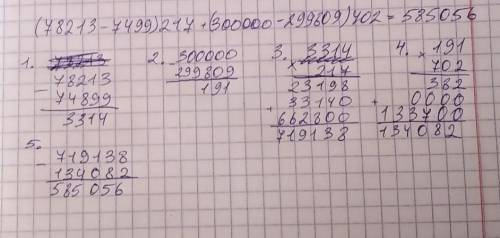 (78213-7499)217+(300000-299809)702=585056
1. 78213
- 78213
74899
3314
2. - 300000
299809
191
3. 3314
× 217
23198
+ 33140
662800
719138
4. × 191
702
382
+ 0000
133700
134082
5. - 719138
134082
585056